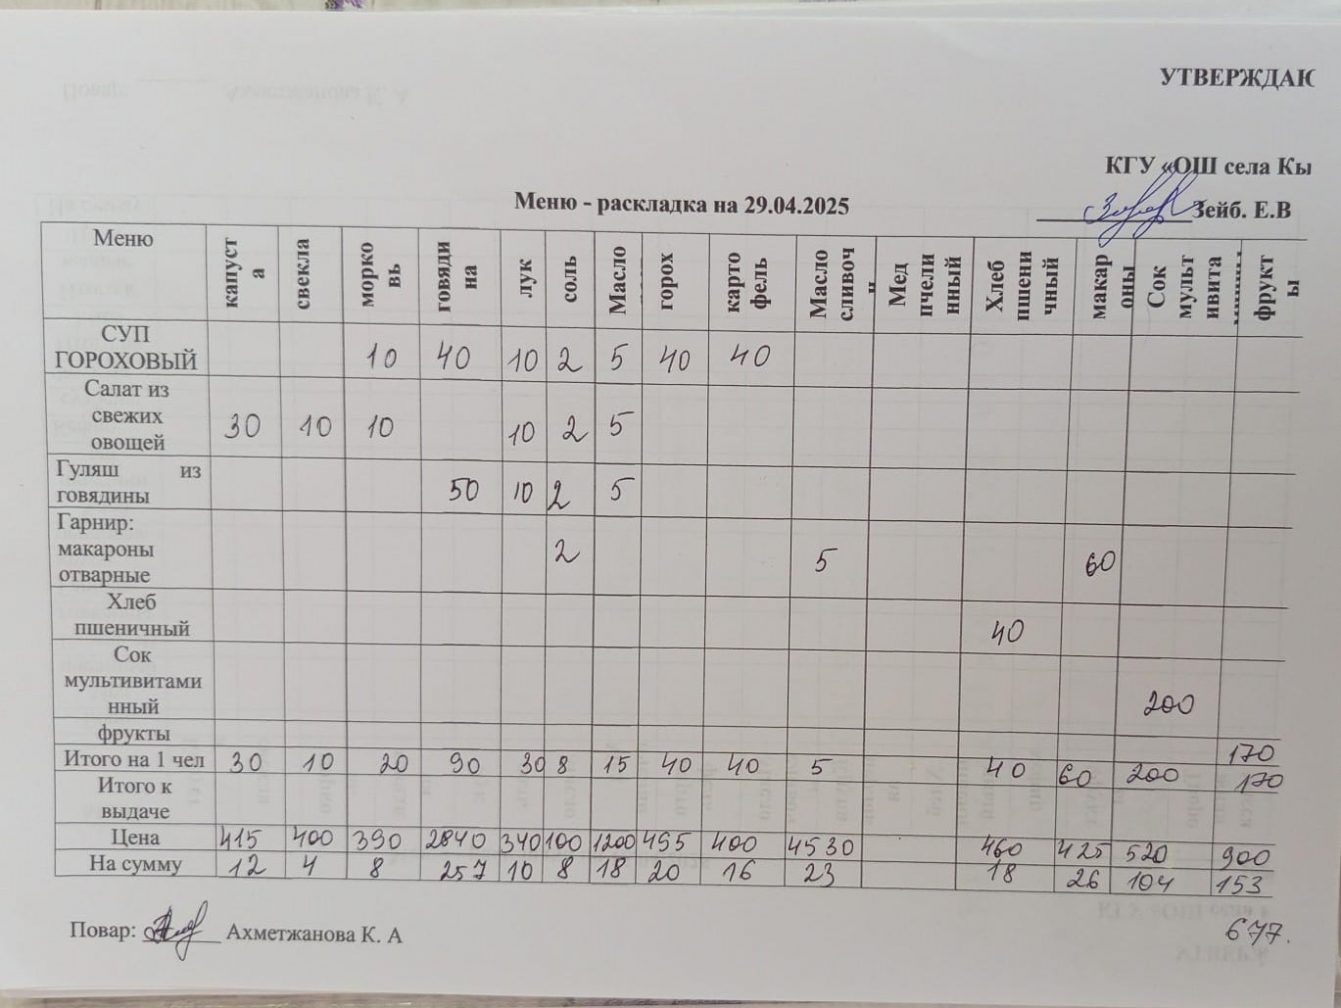 УТВЕРЖДАЮ
КГУ «ОШ села Кы
Меню - раскладка на 29.04.2025
Зейб. Е.В
Меню капуста свекла морковь говядина лук соль Масло горох картофель Масло сливочн Мед пчелинный Хлеб пшеничный макароны Сок мультивита фрукты
СУП ГОРОХОВЫЙ 10 40 10 2 5 40 40
Салат из свежих овощей 30 10 10 10 2 5
Гуляш из говядины 50 10 2 5
Гарнир: макароны отварные 2 5 60
Хлеб пшеничный 40
Сок мультивитаминный 200
фрукты 170
Итого на 1 чел 30 10 20 90 30 8 15 40 40 5 40 60 200 170
Итого к выдаче
Цена 415 400 390 2840 340 100 1200 495 400 4530 460 425 520 900
На сумму 12 4 8 257 10 8 18 20 16 23 18 26 104 153
677.
Повар: Ахметжанова К. А